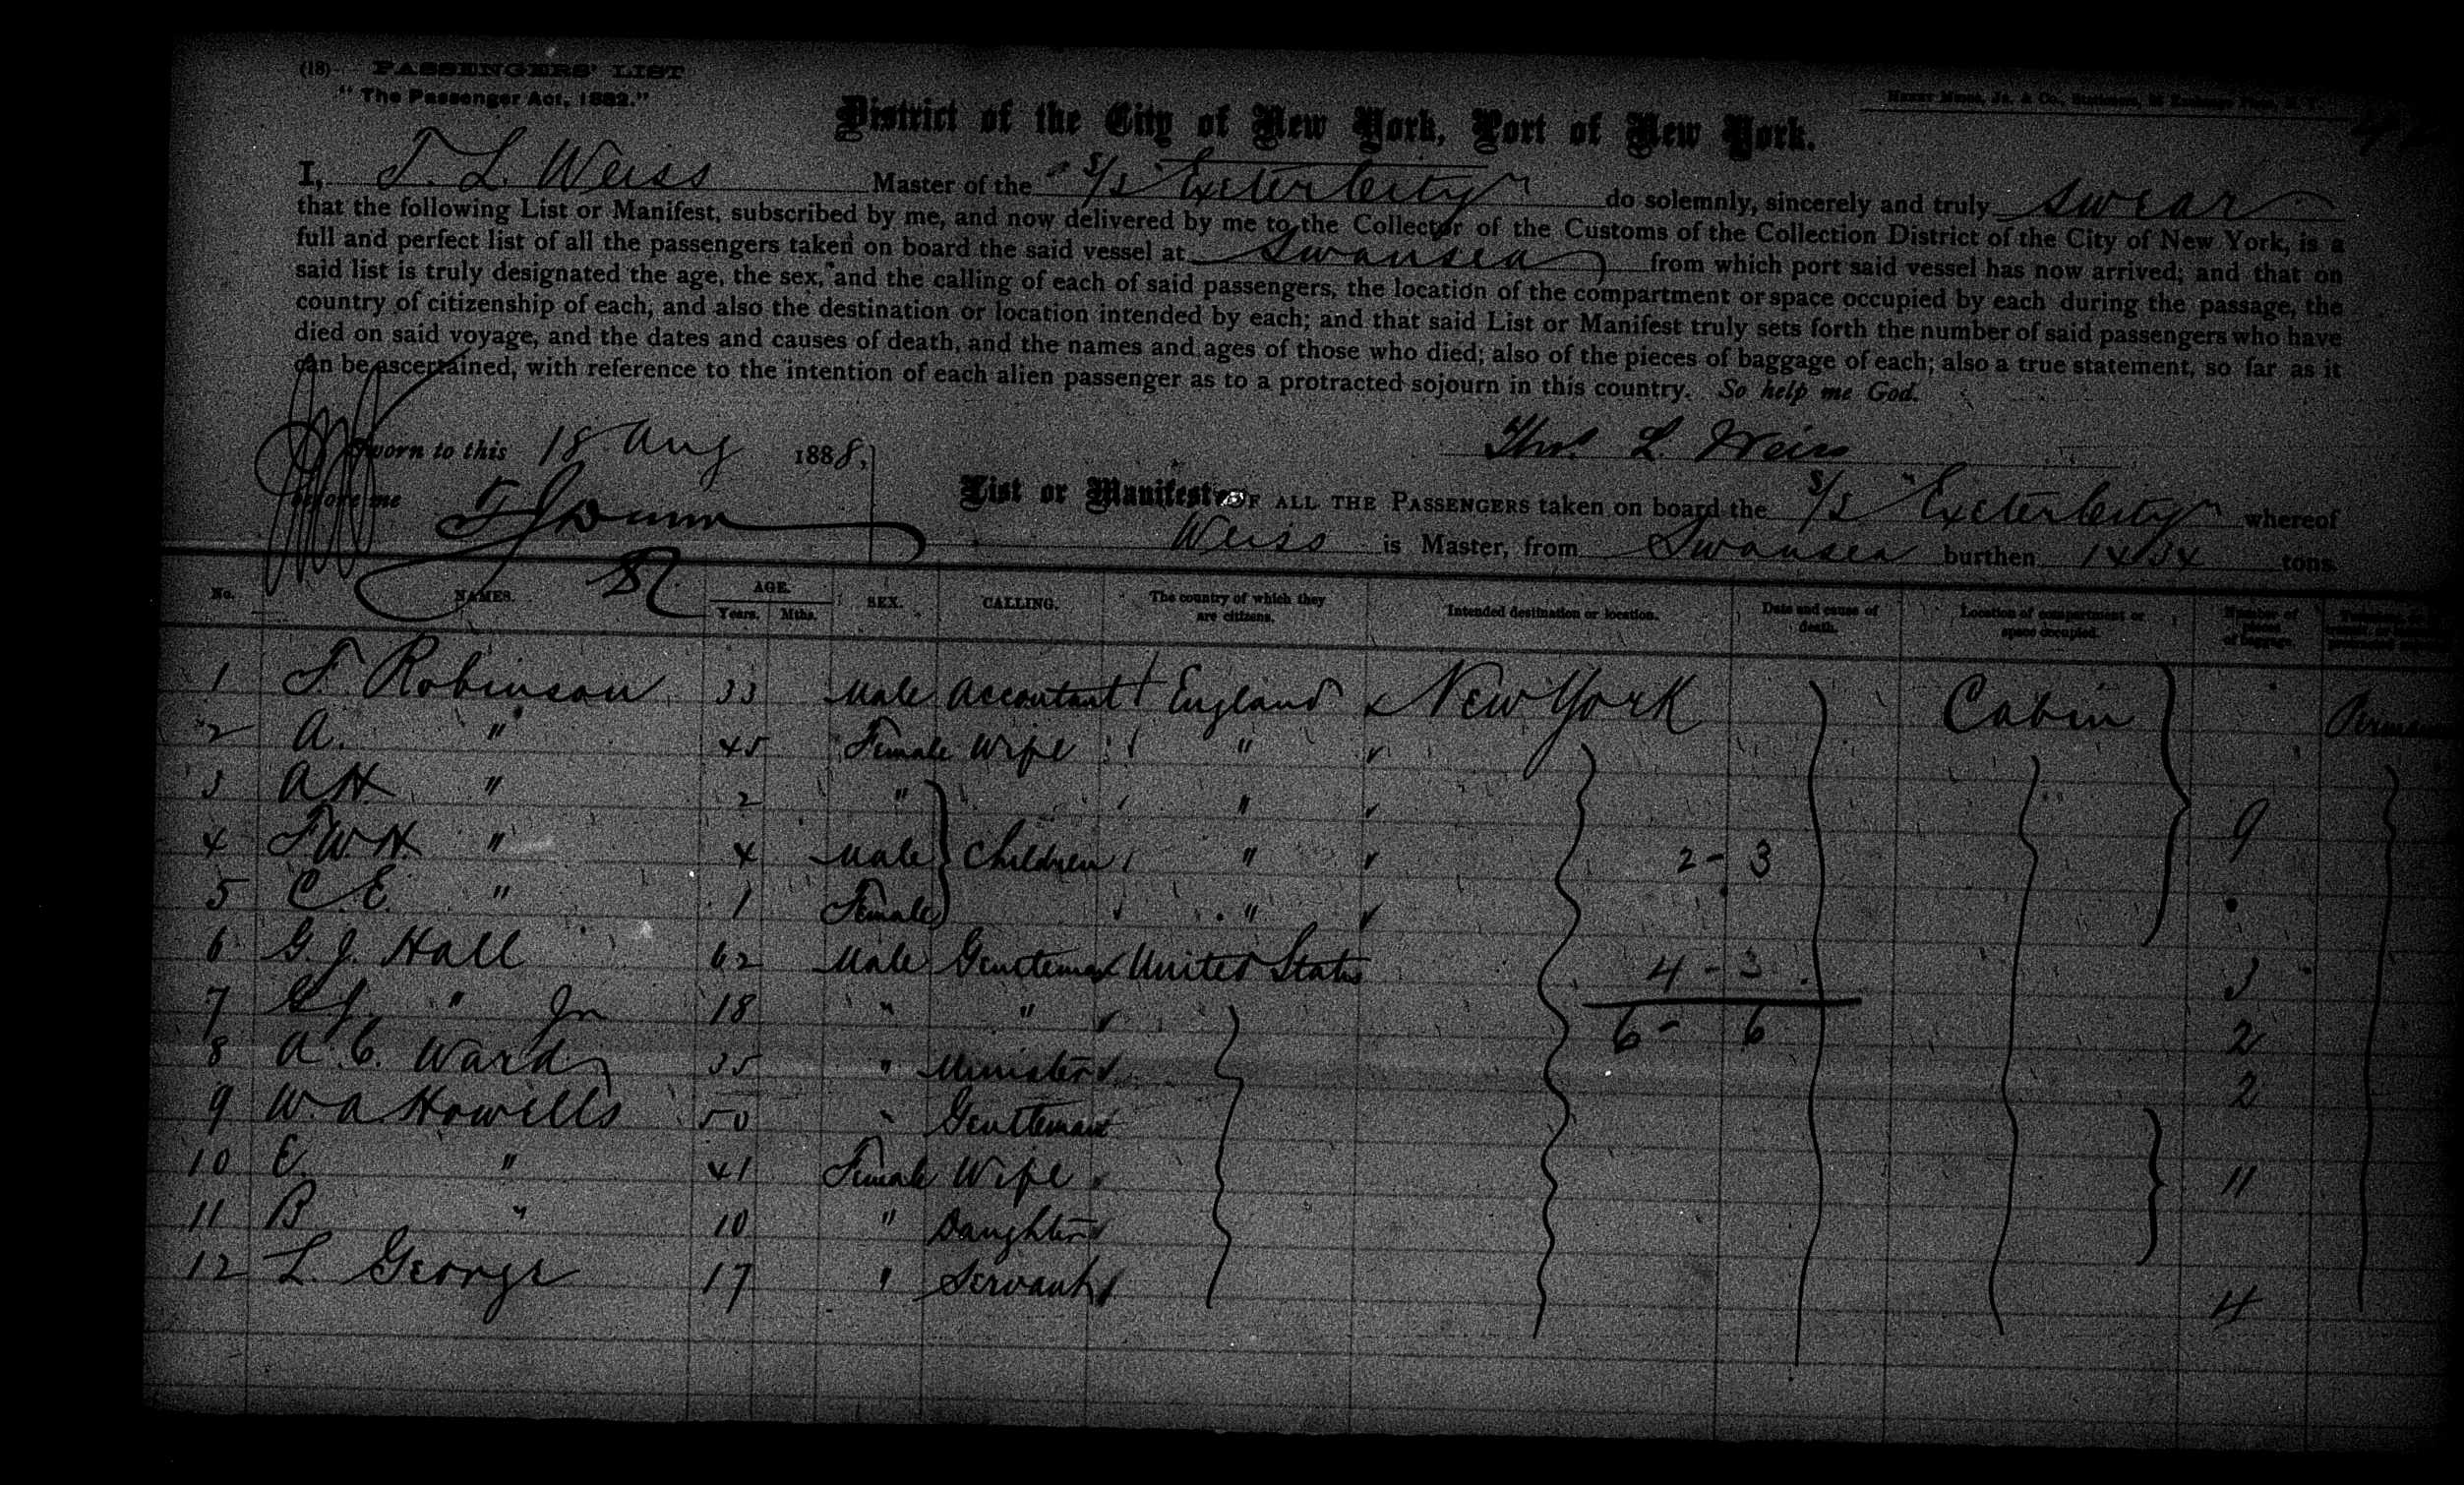 (18) PASSENGERS' LIST
" The Passenger Act, 1882."
District of the City of New York, Port of New York.
I, T. L. Weiss Master of the S/S "Exeter City" do solemnly, sincerely and truly swear
that the following List or Manifest, subscribed by me, and now delivered by me to the Collector of the Customs of the Collection District of the City of New York, is a
full and perfect list of all the passengers taken on board the said vessel at Swansea from which port said vessel has now arrived; and that on
said list is truly designated the age, the sex, and the calling of each of said passengers, the location of the compartment or space occupied by each during the passage, the
country of citizenship of each, and also the destination or location intended by each; and that said List or Manifest truly sets forth the number of said passengers who have
died on said voyage, and the dates and causes of death, and the names and ages of those who died; also of the pieces of baggage of each; also a true statement, so far as it
can be ascertained, with reference to the intention of each alien passenger as to a protracted sojourn in this country. So help me God.
Sworn to this 18 Aug 1888, Thos. L. Weiss
before me
List or Manifest OF ALL THE PASSENGERS taken on board the S/S "Exeter City" whereof
Weiss is Master, from Swansea burthen tons.
No. NAMES. AGE. Years. Mths. SEX. CALLING. The country of which they are citizens. Intended destination or location. Date and cause of death. Location of compartment or space occupied. Number of pieces of baggage.
1 F. Robinson 33 Male Accontant England New York Cabin
2 A. " 45 Female Wife "
3 A H " 2 " "
4 F W. H. " 4 Male Children " 2 - 3 9
5 C. E. " 1 Female "
6 G. J. Hall 62 Male Gentleman United States 4 - 3 3
7 G J. " Jn 18 " " 6 - 6 2
8 A. C. Ward 35 " Minister 2
9 W. A Howells 50 " Gentleman
10 E. " 41 Female Wife 11
11 B " 10 " Daughter
12 L. George 17 " Servant 4